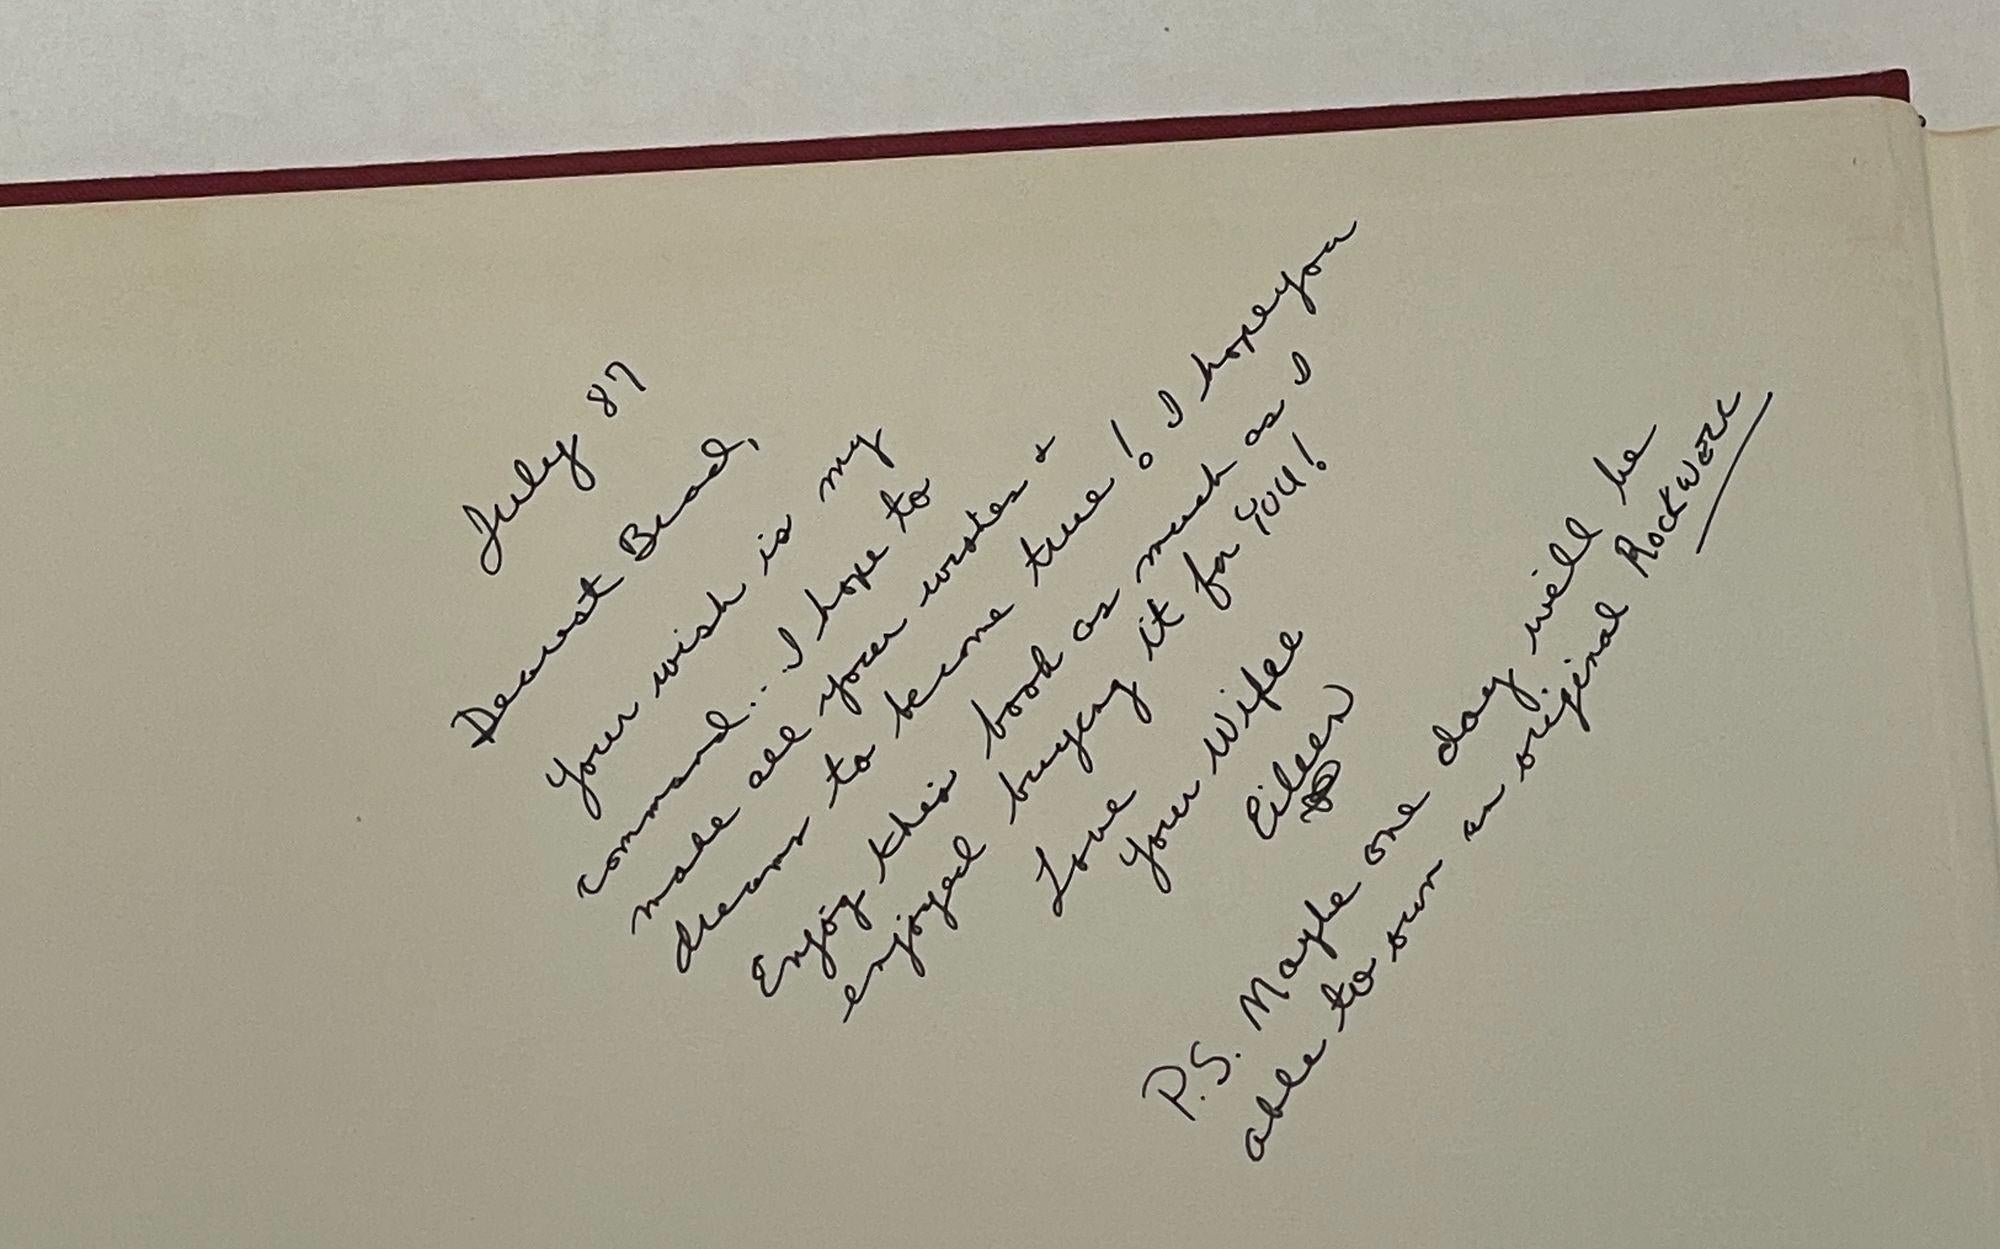 July 87
Dearest Brad,
Your wish is my
command... I hope to
make all your wishes &
dreams to become true! I hope you
Enjoy this book as much as I
enjoyed buying it for YOU!
Love
Your Wifee
Eileen
P.S. Maybe one day will be
able to own an original